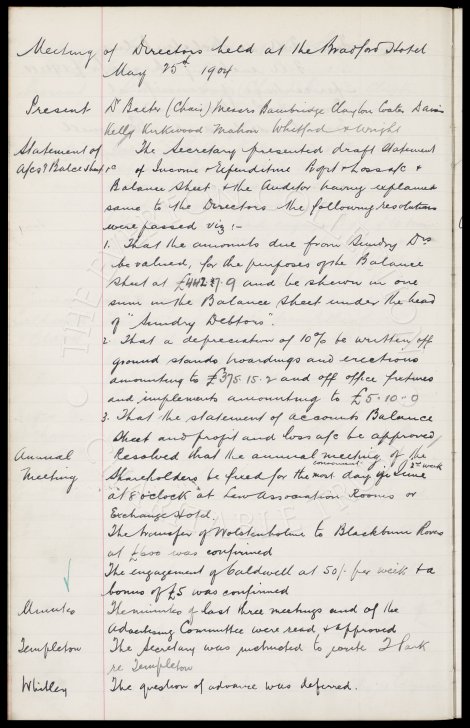 Meeting of Directors held at the Bradford Hotel
May 25th 1904
Present Dr Baxter (Chair) Messrs Bainbridge Clayton Coates Davies
Kelly Kirkwood Mahon Whitford & Wright
Statement of The Secretary presented draft Statement
A/cs & Balce Sheet of Income & Expenditure Profit & Loss a/c &
Balance Sheet & the Auditor having explained
same to the Directors the following resolutions
were passed viz :-
1. That the amounts due from Sundry Drs
be valued, for the purposes of the Balance
Sheet at and be shewn in one
sum in the Balance Sheet under the head
of "Sundry Debtors".
2 That a depreciation of 10% be written off
ground stands hoardings and erections
amounting to £375.15.2 and off office fixtures
and implements amounting to £5.10.9
3. That the statement of accounts Balance
Sheet and profit and loss a/c be approved
Annual Resolved that the annual meeting of the
Meeting Shareholders be fixed for the most convenient day in 2nd week June
at "8 o'clock" at Law Association Rooms or
Exchange Hotel.
The transfer of Wolstenholme to Blackburn Rovers
at £600 was confirmed
The engagement of Caldwell at 50/- per week & a
bonus of £5 was confirmed
Minutes The minutes of last three meetings and of the
Advertising Committee were read & approved
Templeton The Secretary was instructed to write T Park
re Templeton
Whitley The question of advance was deferred.